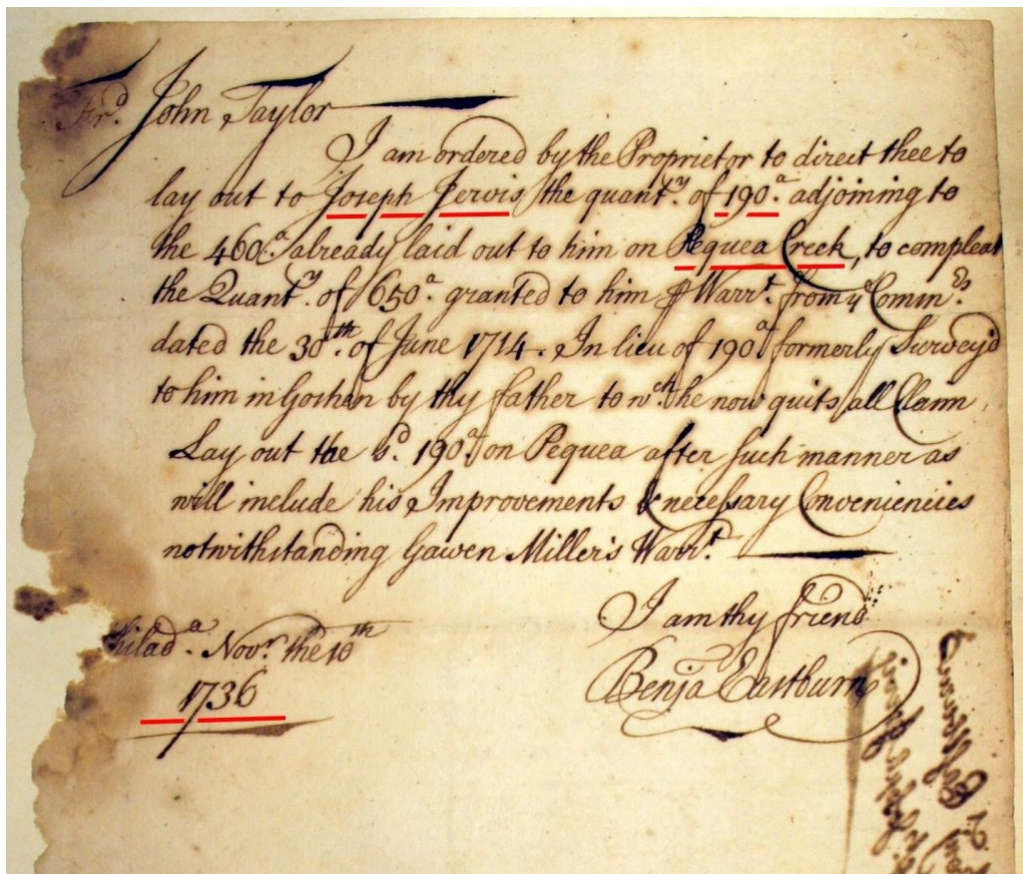 Frd. John Taylor
I am ordered by the Proprietor to direct thee to
lay out to Joseph Jervis the quanty. of 190a. adjoining to
the 460a. already laid out to him on Pequea Creek, to compleat
the Quanty. of 650a. granted to him ⅌ Warrt. from ye Commrs.
dated the 30th. of June 1714. In lieu of 190a formerly Survey'd
to him in Goshen by thy father to wch. he now quits all Claim.
Lay out the sd. 190a. on Pequea after such manner as
will include his Improvements & necessary Conveniencies
notwithstanding Gawen Miller's Warrt.
I am thy friend
Benja Eastburn
Philada. Novr. the 10th
1736